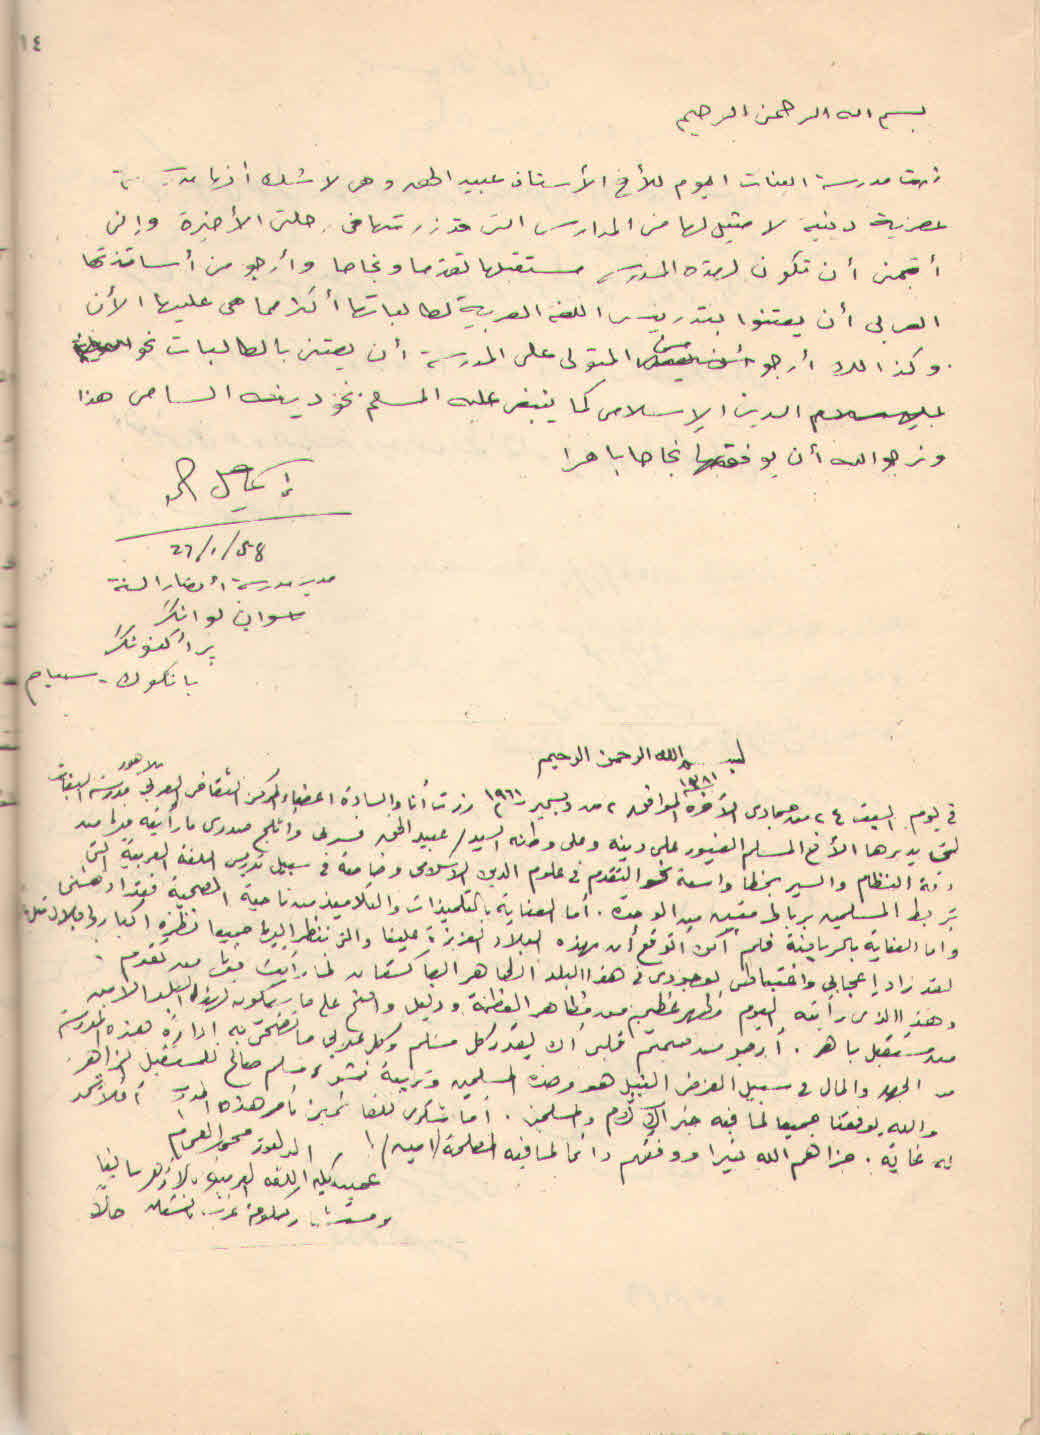 ١٤
بسم الله الرحمن الرحيم
زرت مدرسة البنات اليوم للأخ الأستاذ عبيد الحق وهي لا شك أنها مدرسة
عصرية دينية لا مثيل لها من المدارس التي قد زرتها في رحلتي الأخيرة وإني
أتمنى أن تكون لهذه المدرسة مستقبلها تقدما ونجاحا وأرجو من أساتذتها
العربي أن يعتنوا بتدريس اللغة العربية لطالباتها أكثر مما هي عليها الآن
وكذالك أرجو من المتولى على المدرسة أن يعتني بالطالبات نحو
الدين الإسلامي كما ينبغي عليه المسلم نحو دينه السامي هذا
ونرجو الله أن يوفقها نجاحا باهرا
إسماعيل
٢٦/١/٥٨
مدير مدرسة أنصار السنة
سوان لوانك
برأكنونك
بانكوك - سيام
بسم الله الرحمن الرحيم
في يوم السبت ٢٤ من جمادى الآخرة ١٣٨١ الموافق ٢ من ديسمبر ١٩٦١ زرت أنا والسادة اعضاء المركز الثقافي العربي بلاهور مدرسة البنات
التي يديرها الأخ المسلم الغيور على دينه وعلى وطنه السيد/ عبيد الحق فسرني وأثلج صدري ما رأيته فيها من
دقة النظام والسير بخطا واسعة نحو التقدم في علوم الدين الاسلامي وخاصة في سبيل تدريس اللغة العربية التي
تربط المسلمين برباط متين من الوحدة . أما العناية بالتلميذات والتلاميذ من ناحية الصحية فقد ادهشني
واما العناية بالحرباينة فلم أكن أتوقع أن بهذه البلاد العزيزة علينا والتي ننظر إليها جميعا نظرة اكبار واجلال
لقد زاد إعجابي واغتباطي بوجودي في هذا البلد الطاهر الباكستان لما رأيت فيها من تقدم
وهذا الذي رأيته اليوم مظهر عظيم من مظاهر العظمة ودليل واضح على ما سيكون لهذا البلد الأمين
من مستقبل باهر . أرجو من صميم قلبي أن يقدر كل مسلم وكل عربي ما تضحي به إدارة هذه المدرسة
من الجهد والمال في سبيل الغرض النبيل هو وحدة المسلمين وتربية نشوء مسلم صالح للمستقبل الزاهر
والله يوفقنا جميعا لما فيه خير الإسلام والمسلمين . أما شكري للقائمين بأمر هذه المدرسة فلا حد
له غاية . جزاهم الله خيرا ووفقهم دائما لما فيه المصلحة (امين)
الدكتور محمد
عميد كلية اللغة العربية بالأزهر سابقا
حالا